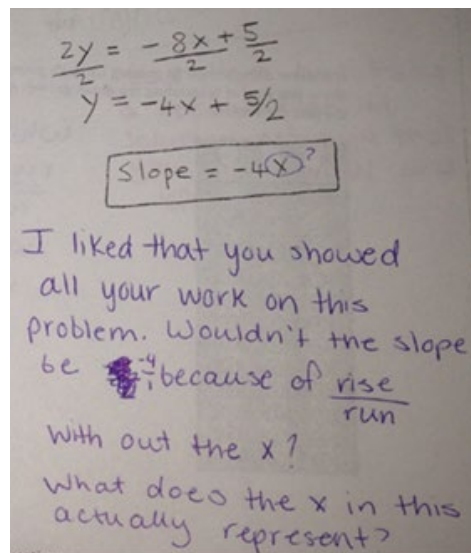 2y = -8x + 5
2 2 2
y = -4x + 5/2
Slope = -4x ?
I liked that you showed
all your work on this
problem. Wouldn't the slope
be -4/1 because of rise/run
with out the x?
What does the x in this
actually represent?